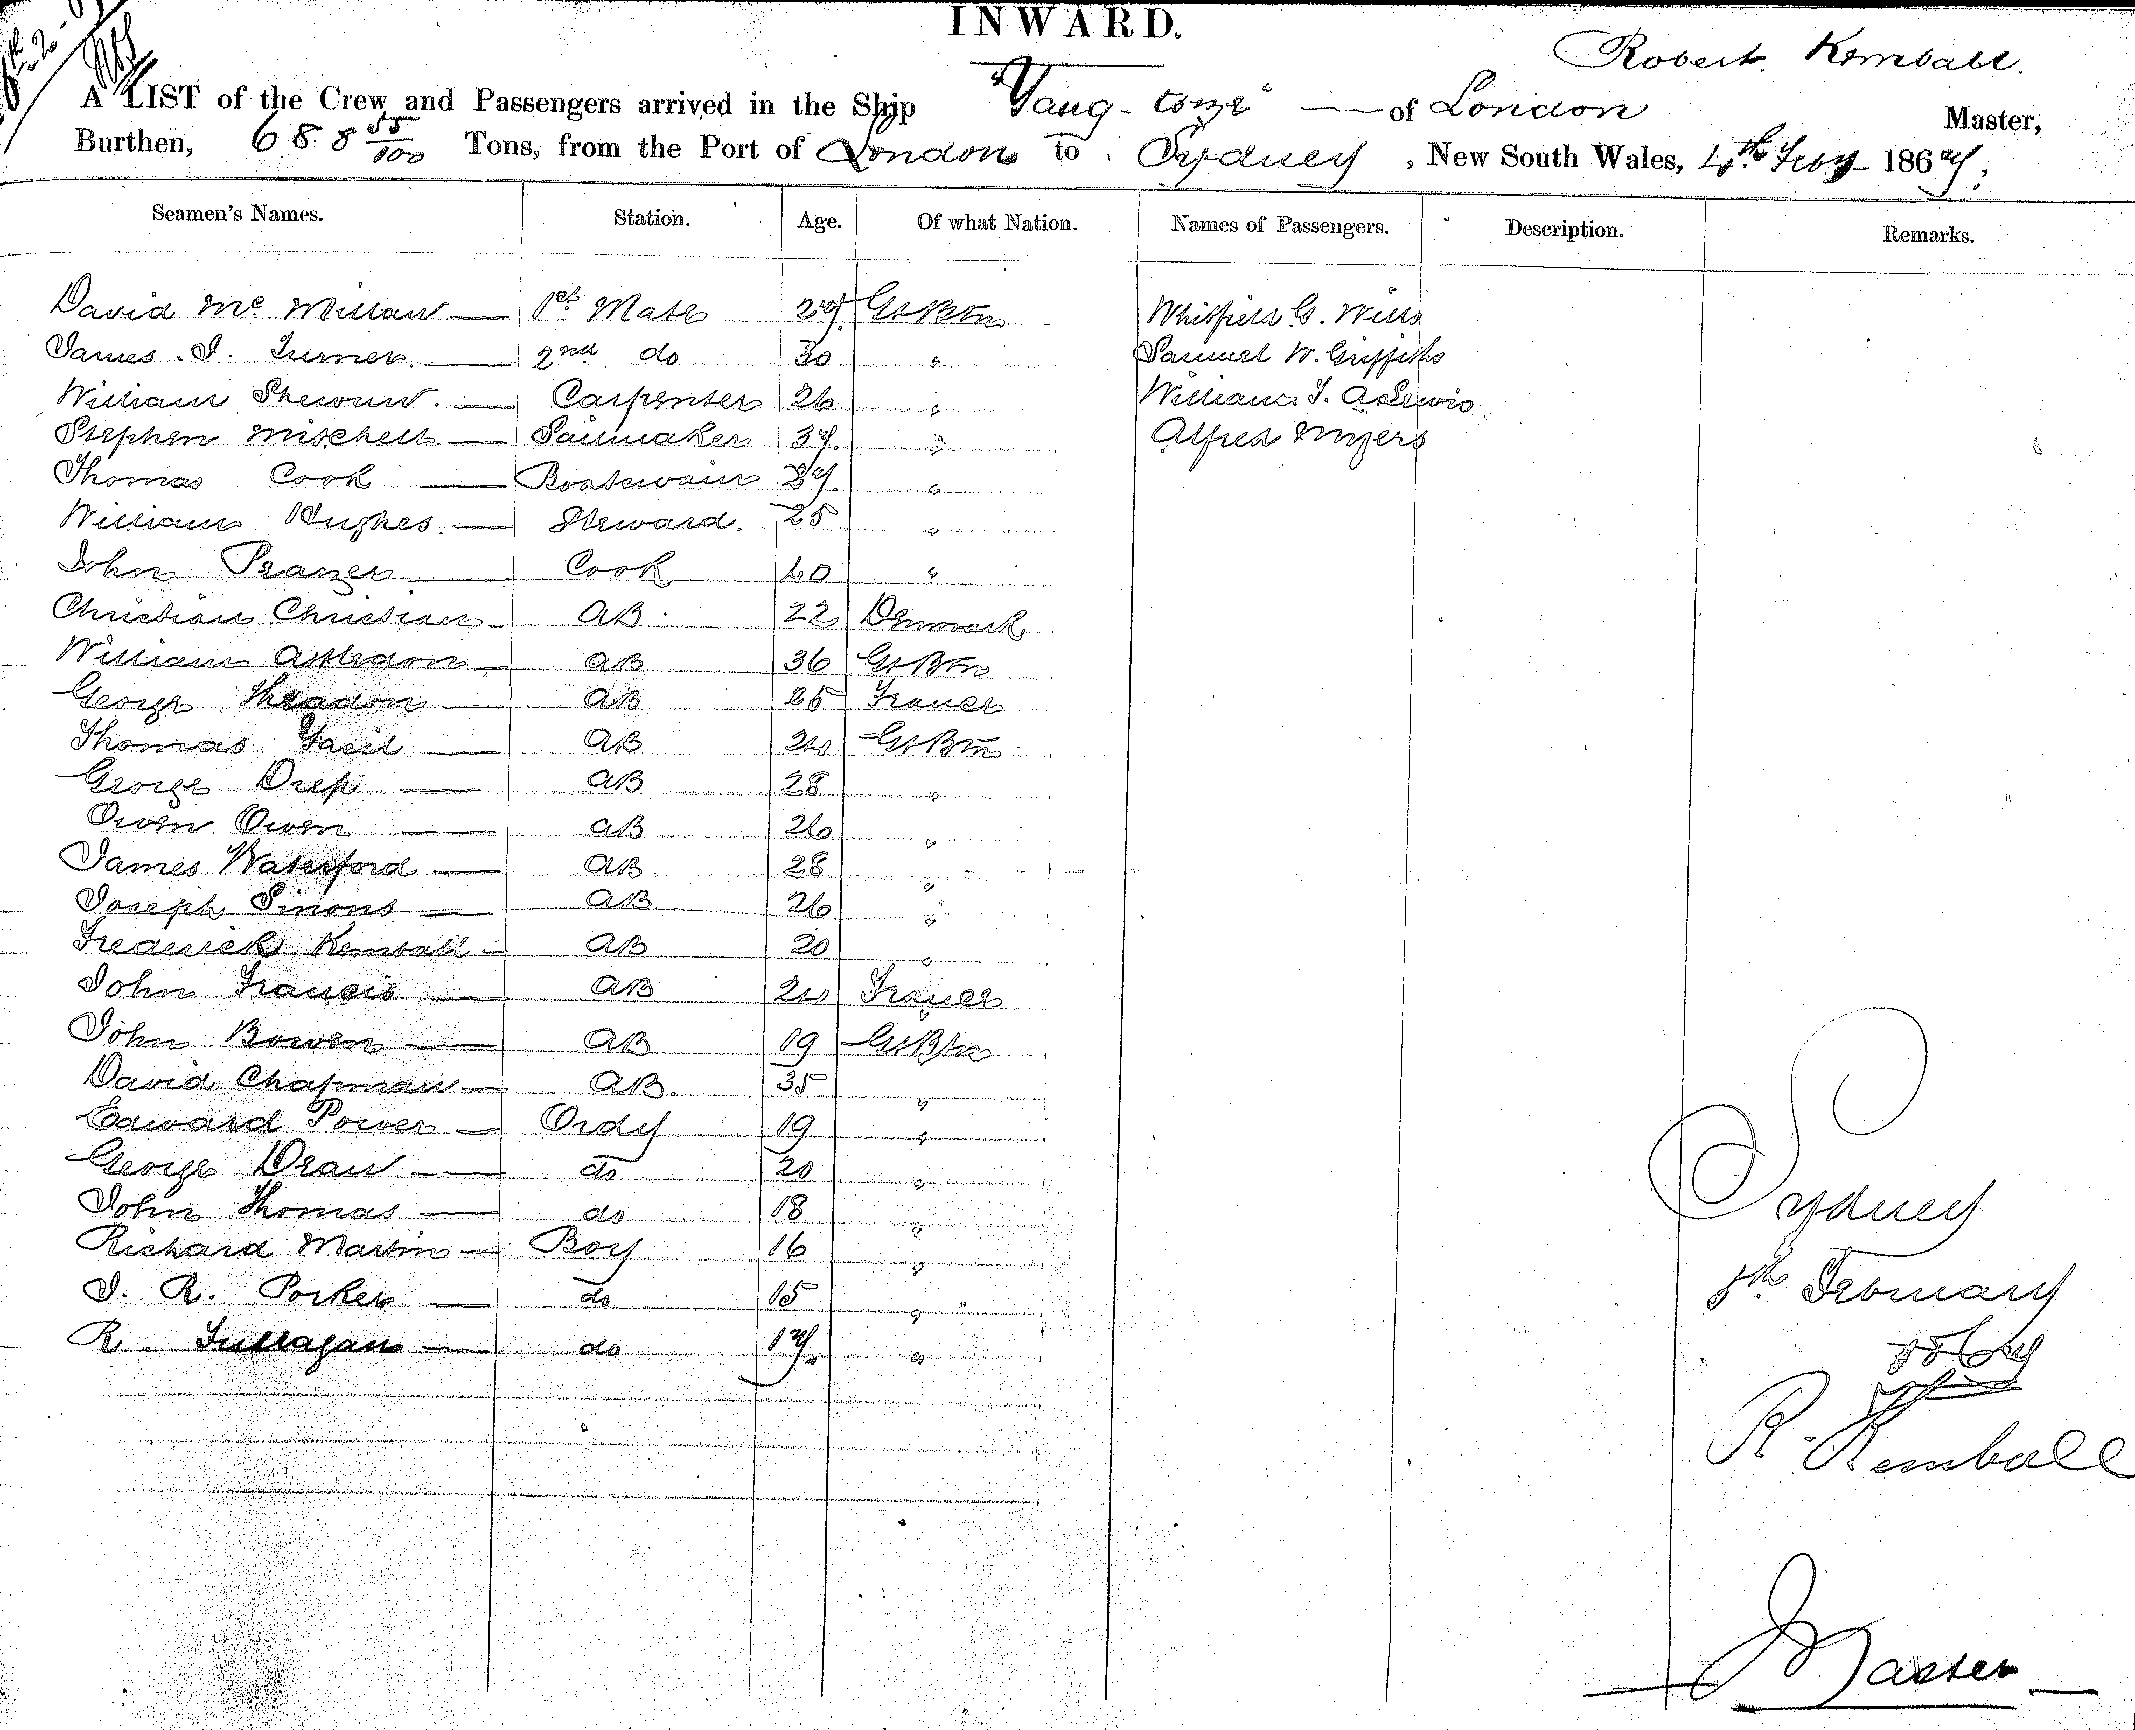 INWARD.
Robert Kemball.
A LIST of the Crew and Passengers arrived in the Ship "Yang-tsze" of London Master,
Burthen, 688 55/100 Tons, from the Port of London to Sydney, New South Wales, 4th Feby 1867;
Seamen's Names. Station. Age. Of what Nation. Names of Passengers. Description. Remarks.
David McMillan 1st Mate 27 Gt Btn Whitfield G. Wills
James . J. Turner 2nd do 30 " Samuel W. Griffiths
William Carpenter 26 " William J.
Stephen Mitchell Sailmaker 37 " Alfred Myers
Thomas Cook Boatswain 37 "
William Hughes Steward. 25 "
John Cook 40 "
Christian Christian AB 22 Denmark
William AB 36 Gt Btn
George AB 25 France
Thomas AB 24 Gt Btn
George AB 28 "
Owen Owen AB 26 "
James Waterford AB 28 "
Joseph Simons AB 26 "
Frederick Kemball AB 20 "
John Francis AB 24 France
John Bowen AB 19 Gt Btn
David Chapman AB. 35 "
Edward Power Ordy 19 "
George Draw do 20 "
John Thomas do 18 "
Richard Martin Boy 16 "
J. R. Porker do 15 "
R. Fullagan do 17 "
Sydney
5th February
1867
R. Kemball
Master